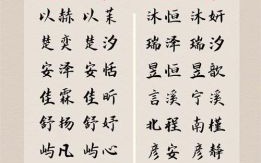 以赫 以茉 沐恒 沐妍
楚奕 楚汐 瑞泽 瑞汐
安泽 安恬 昱恒 昱歆
佳霖 佳昕 言溪 宁溪
舒扬 舒妤 北程 南槿
屿凡 屿心 彦安 彦静